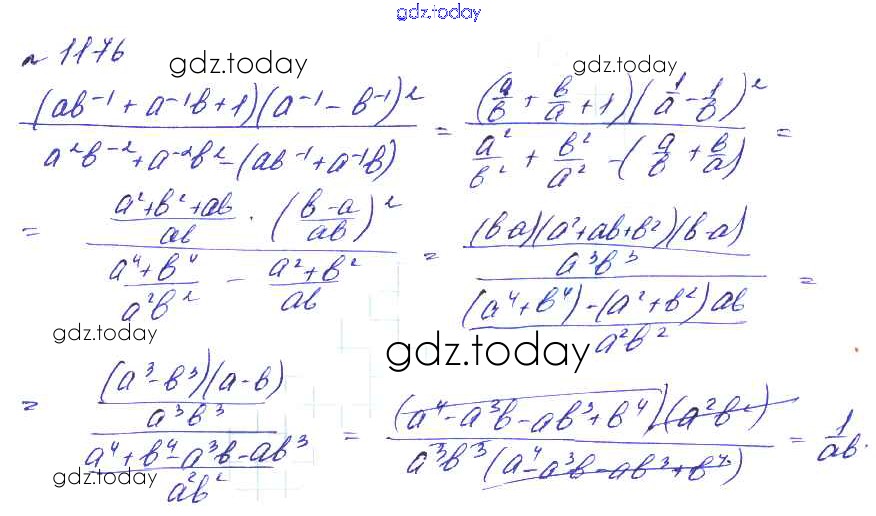 gdz.today
№ 1176
gdz.today gdz.today
(ab⁻¹ + a⁻¹b + 1)(a⁻¹ − b⁻¹)² / (a²b⁻² + a⁻²b² − (ab⁻¹ + a⁻¹b)) = (a/b + b/a + 1)(1/a − 1/b)² / (a²/b² + b²/a² − (a/b + b/a)) =
= ((a² + b² + ab)/ab · ((b − a)/ab)²) / ((a⁴ + b⁴)/a²b² − (a² + b²)/ab) = ((b − a)(a² + ab + b²)(b − a)/a³b³) / (((a⁴ + b⁴) − (a² + b²)ab)/a²b²) =
gdz.today gdz.today
= ((a³ − b³)(a − b)/a³b³) / ((a⁴ + b⁴ − a³b − ab³)/a²b²) = (a⁴ − a³b − ab³ + b⁴)(a²b²) / (a³b³(a⁴ − a³b − ab³ + b⁴)) = 1/ab.
gdz.today gdz.today